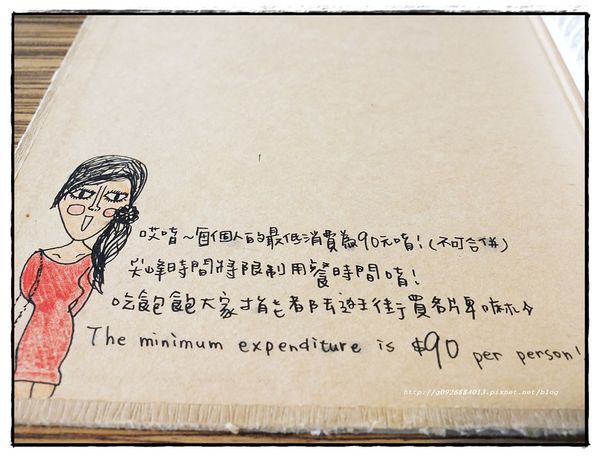 哎唷~每個人的最低消費為90元唷!(不可合併)
尖峰時間將限制用餐時間唷!
吃飽飽大家才能去逛街買名牌嘛
The minimum expenditure is $90 per person!
http://a0926884013.pixnet.net/blog